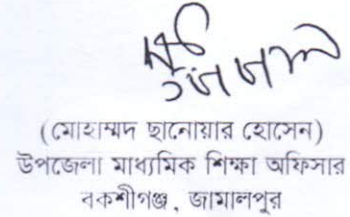 (মোহাম্মদ ছানোয়ার হোসেন)
উপজেলা মাধ্যমিক শিক্ষা অফিসার
বকশীগঞ্জ, জামালপুর